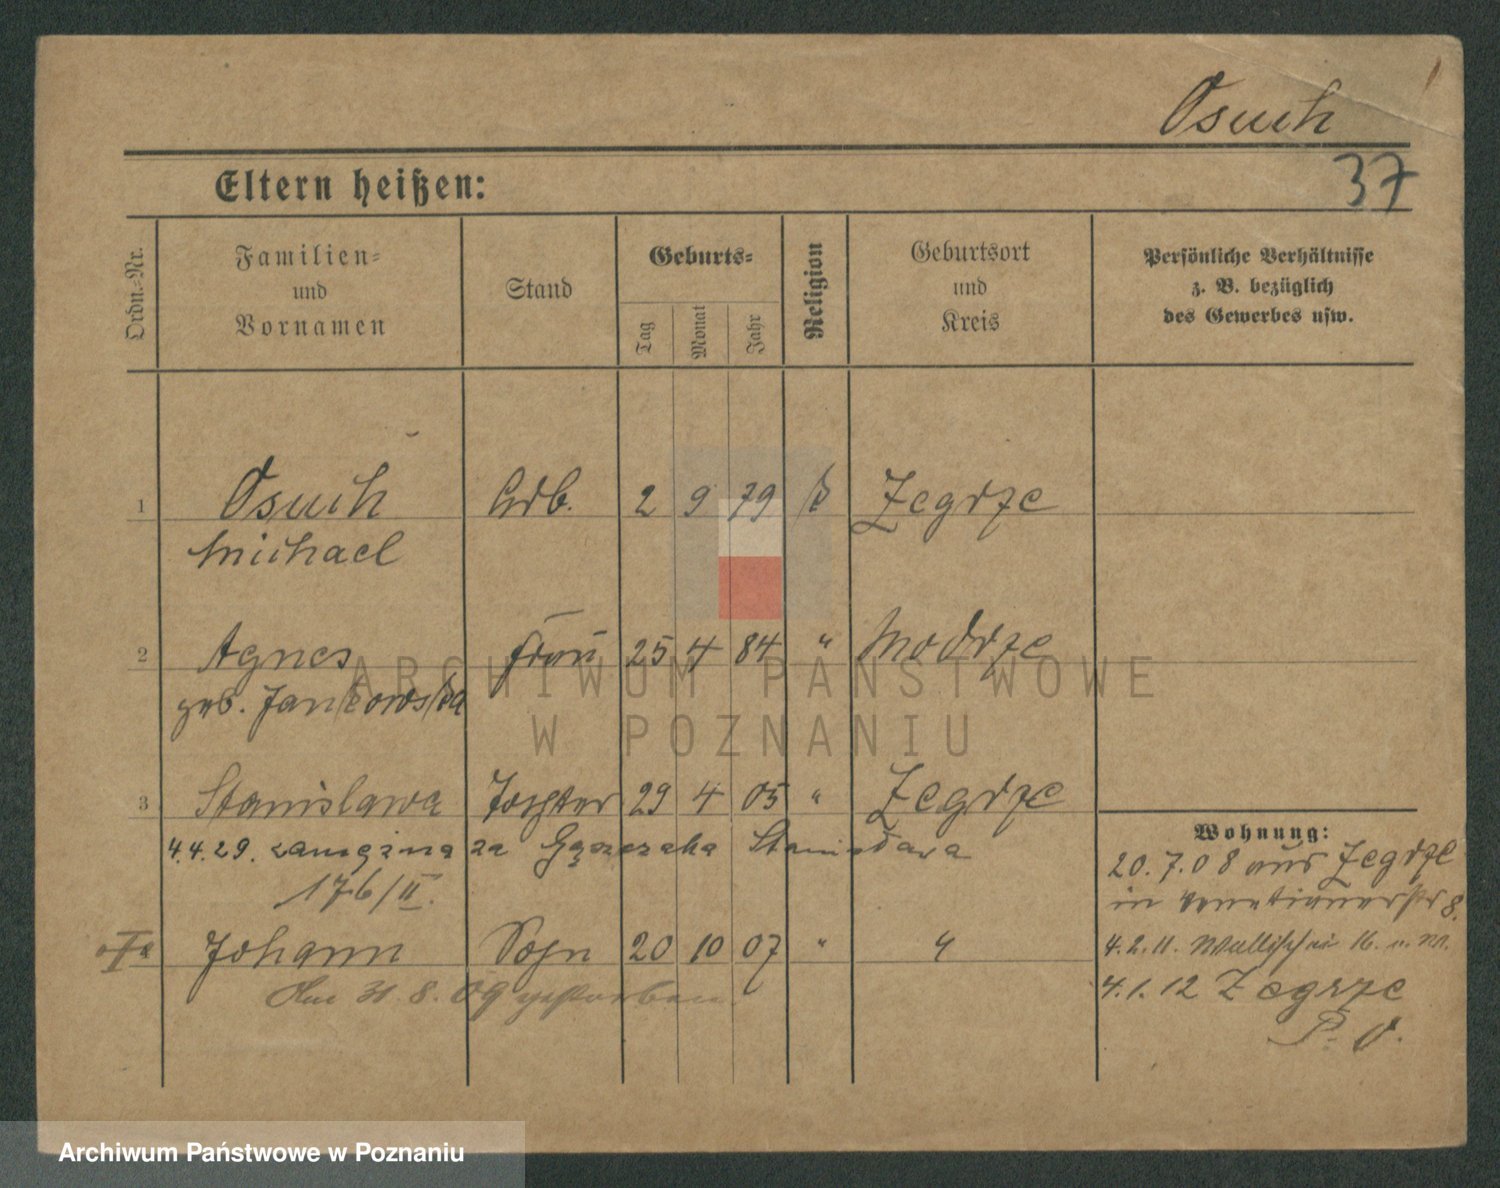 Osuch
37
Eltern heißen:
Ordn.-Nr.
Familien-
und
Vornamen
Stand
Geburts-
Tag
Monat
Jahr
Religion
Geburtsort
und
Kreis
Persönliche Verhältnisse
z. B. bezüglich
des Gewerbes usw.
1 Osuch Arb. 2 9 79 k Zegrze
Michael
2 Agnes Frau 25 4 84 " Modrze
geb. Jankowska
3 Stanislawa Tochter 29 4 05 " Zegrze
4.4.29. zamężna za Stanisława
176/II.
Johann Sohn 20 10 07 " "
Am 31. 8. 09 gestorben
Wohnung:
20. 7. 08 aus Zegrze
in Venetianerstr 8.
4. 2. 11. Wallischei 16. u. M.
4. 1. 12 Zegrze
P. O.
ARCHIWUM PAŃSTWOWE
W POZNANIU
Archiwum Państwowe w Poznaniu